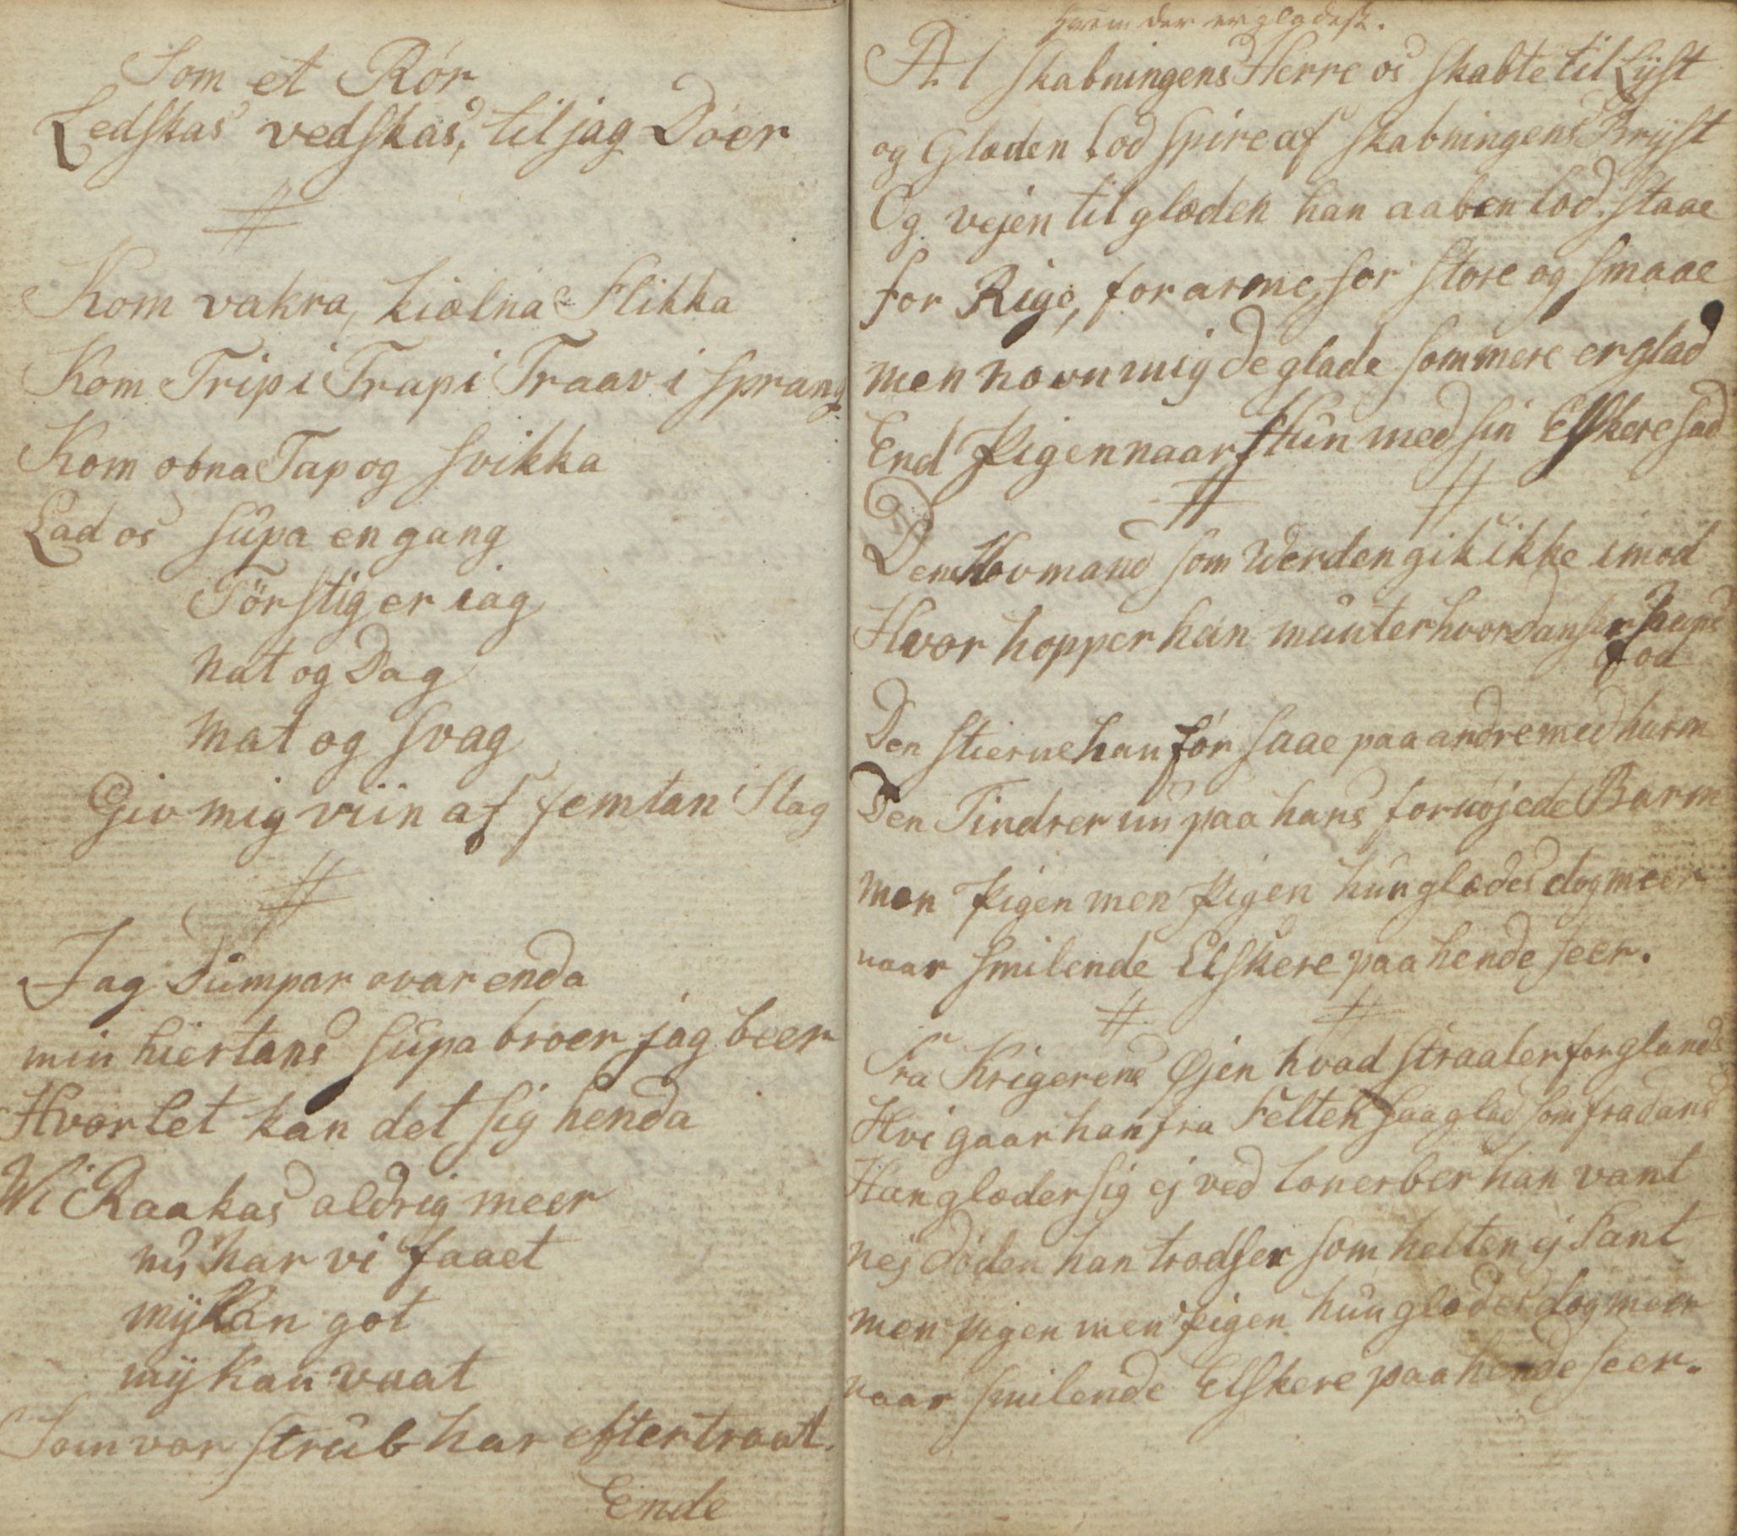 Som et Rör
Ledskas vedskas, til jag Döer
Kom vakra, kiælna Flikka
Kom Trip i Trap i Traav i sprang
Kom obna Tap og svikka
Lad os supa en gang
Törstig er iag
Nat og Dag
Mat og svag
Giv mig viin af femtan Slag
Jag Dumpar ovar enda
min hiertans supa broer jag beer
Hvor let kan det sig henda
Wi Raakas aldrig meer
nu har vi faaet
mykan got
mykan vaat
Som vor strub har eftertraat.
Ende
Hvem der er gladest.
At skabningens Herre os skabte til Lyst
og Glæden lod spire af skabningens Bryst
Og vejen til glæden han aaben lod staae
for Rige, for arme, for store og smaae
men nævn mig de glade som mere er glad
End Pigen naar Hun med sin Elskere sad
Den Hovmand som Verden gik ikke imod
Hvor hopper han munter hvor danser hans
fod
Den stierne han för saae paa andre med harm
Den Tindrer nu paa hans fornöjede Barm
men Pigen men Pigen hun glædes dog meer
naar smilende Elskere paa hende seer.
Fra Krigerens Øjen hvad straaler for glands
Hvi gaar han fra Felten saa glad som fra dands
Han glæder sig ej ved lauerber han vant
nej döden han trodser som helten ej Fant
men pigen men pigen hun glædes dog meer
naar smilende Elskere paa hende seer.